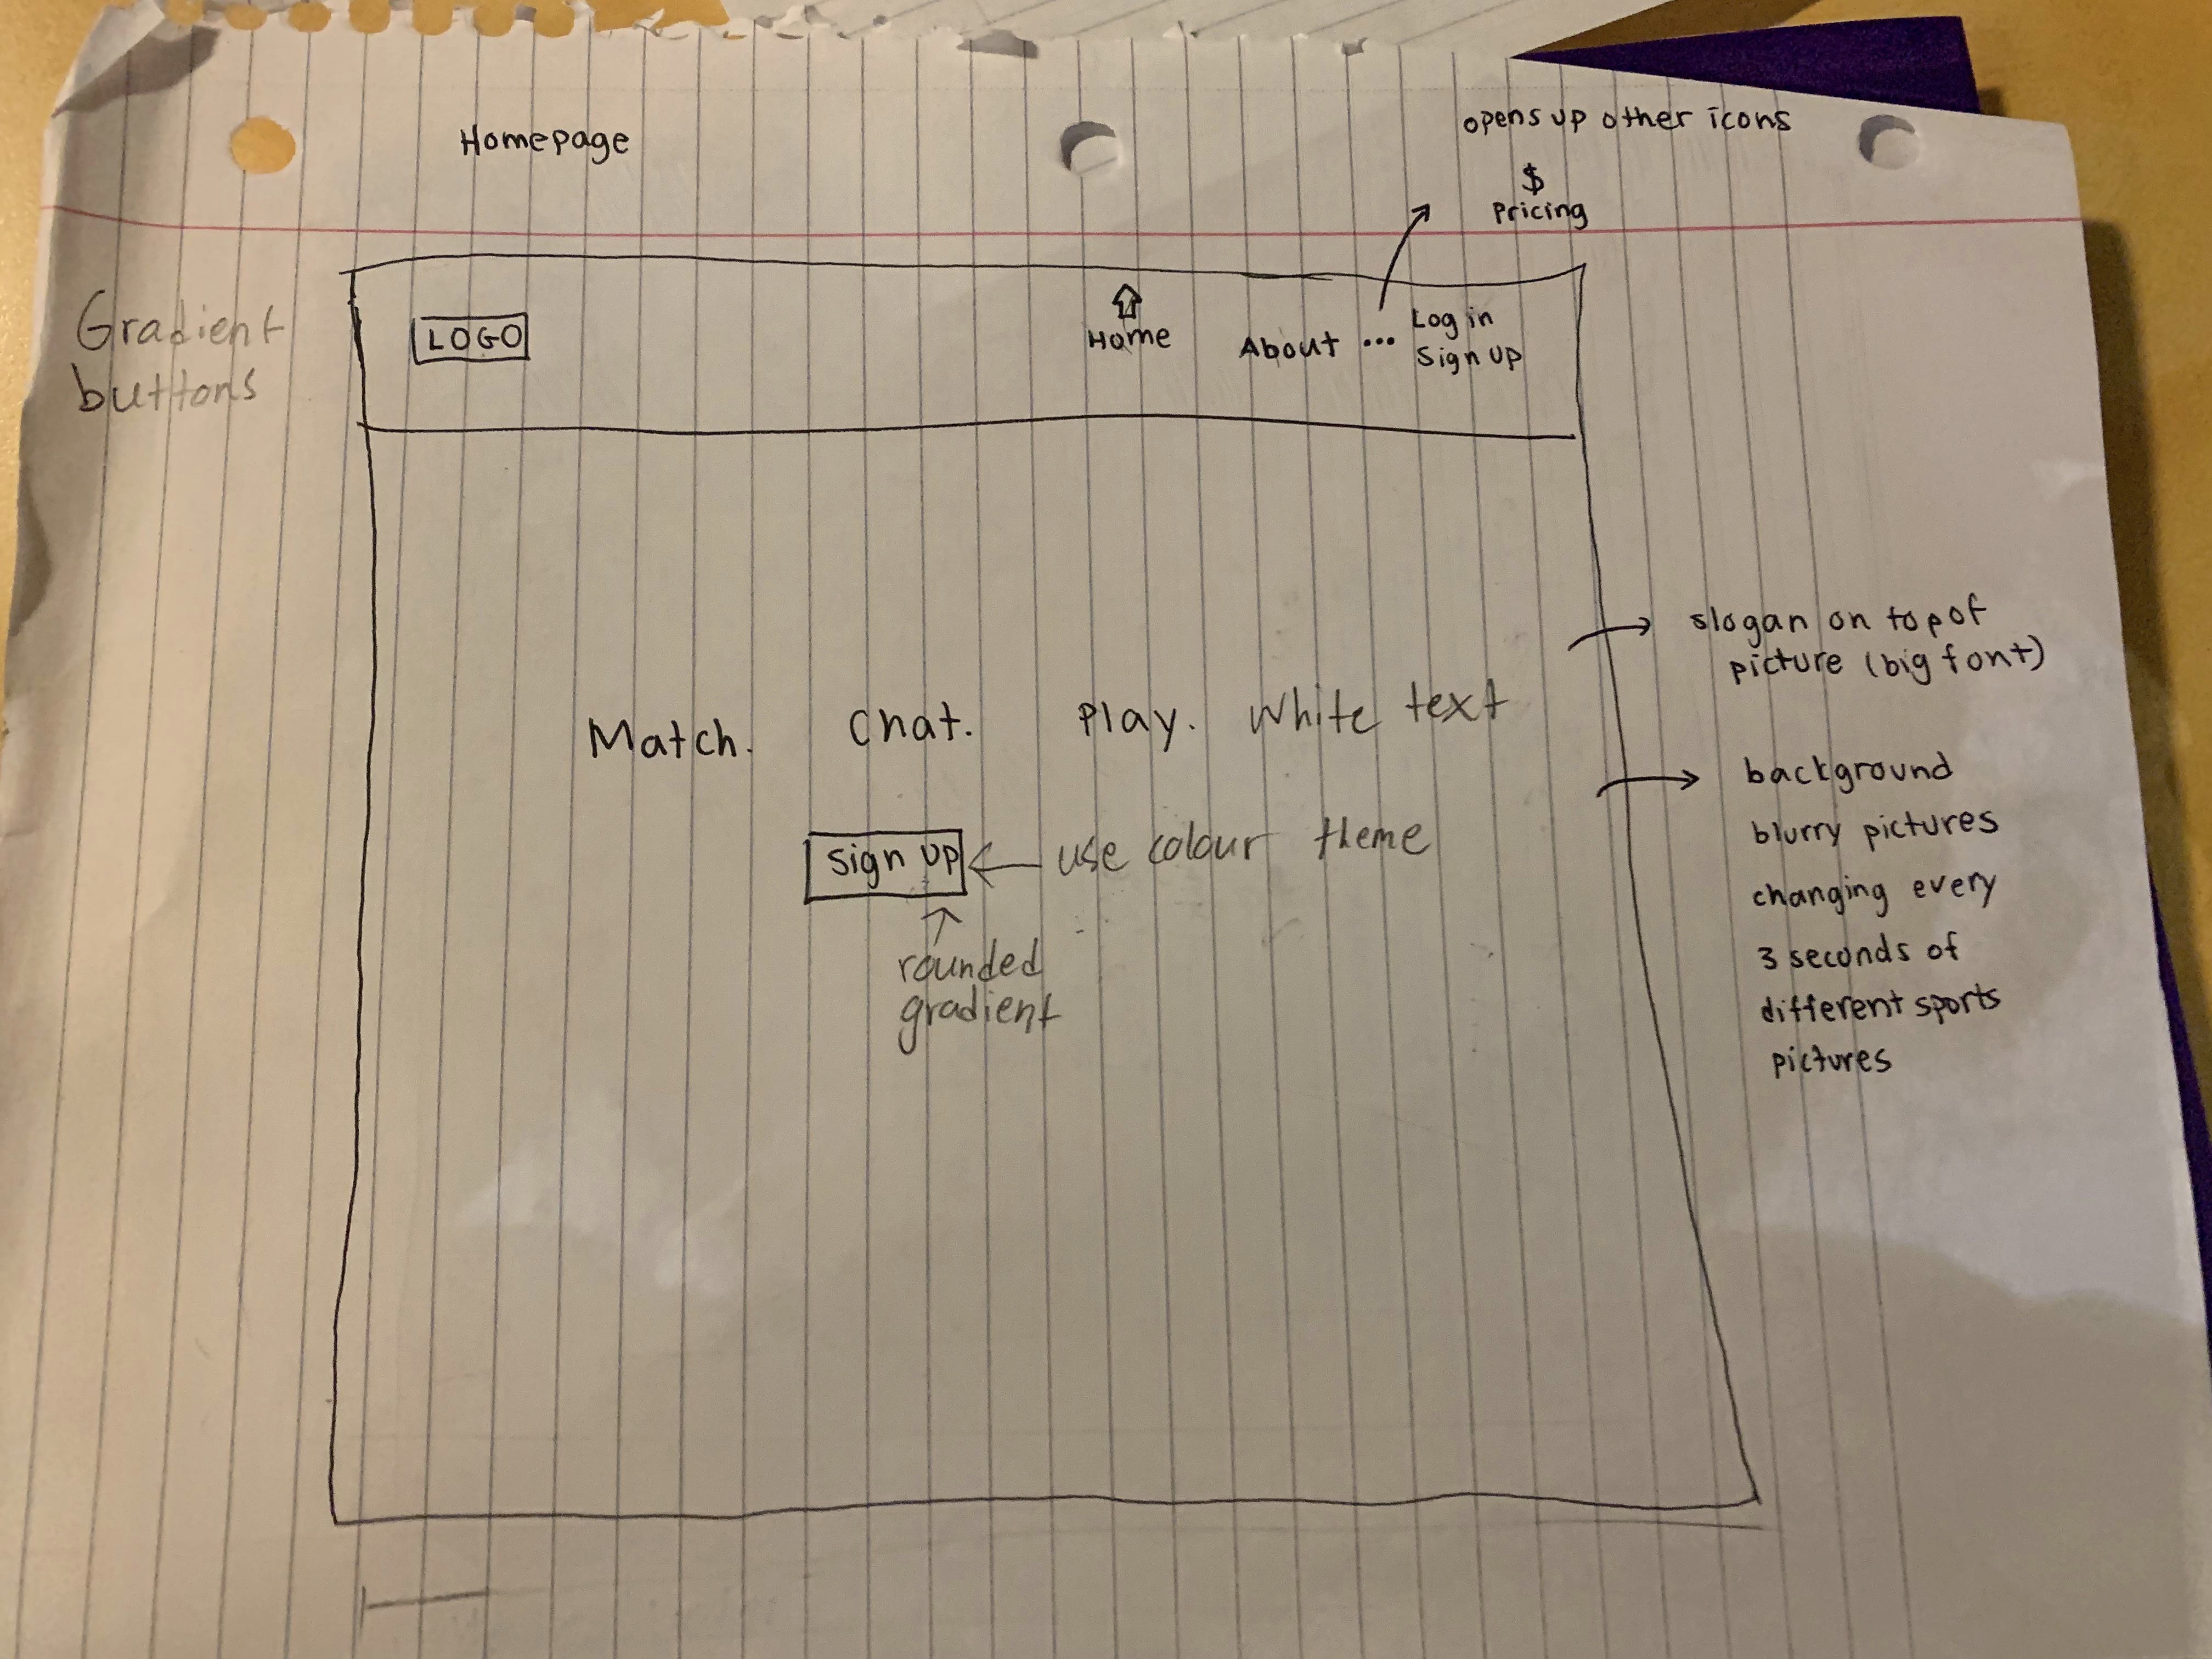 Homepage
opens up other icons
$
Pricing
Gradient
buttons
LOGO
Home
About ...
Log in
Sign Up
slogan on top of
picture (big font)
Match. Chat. Play. White text
background
blurry pictures
changing every
3 seconds of
different sports
pictures
Sign Up
use colour theme
rounded
gradient